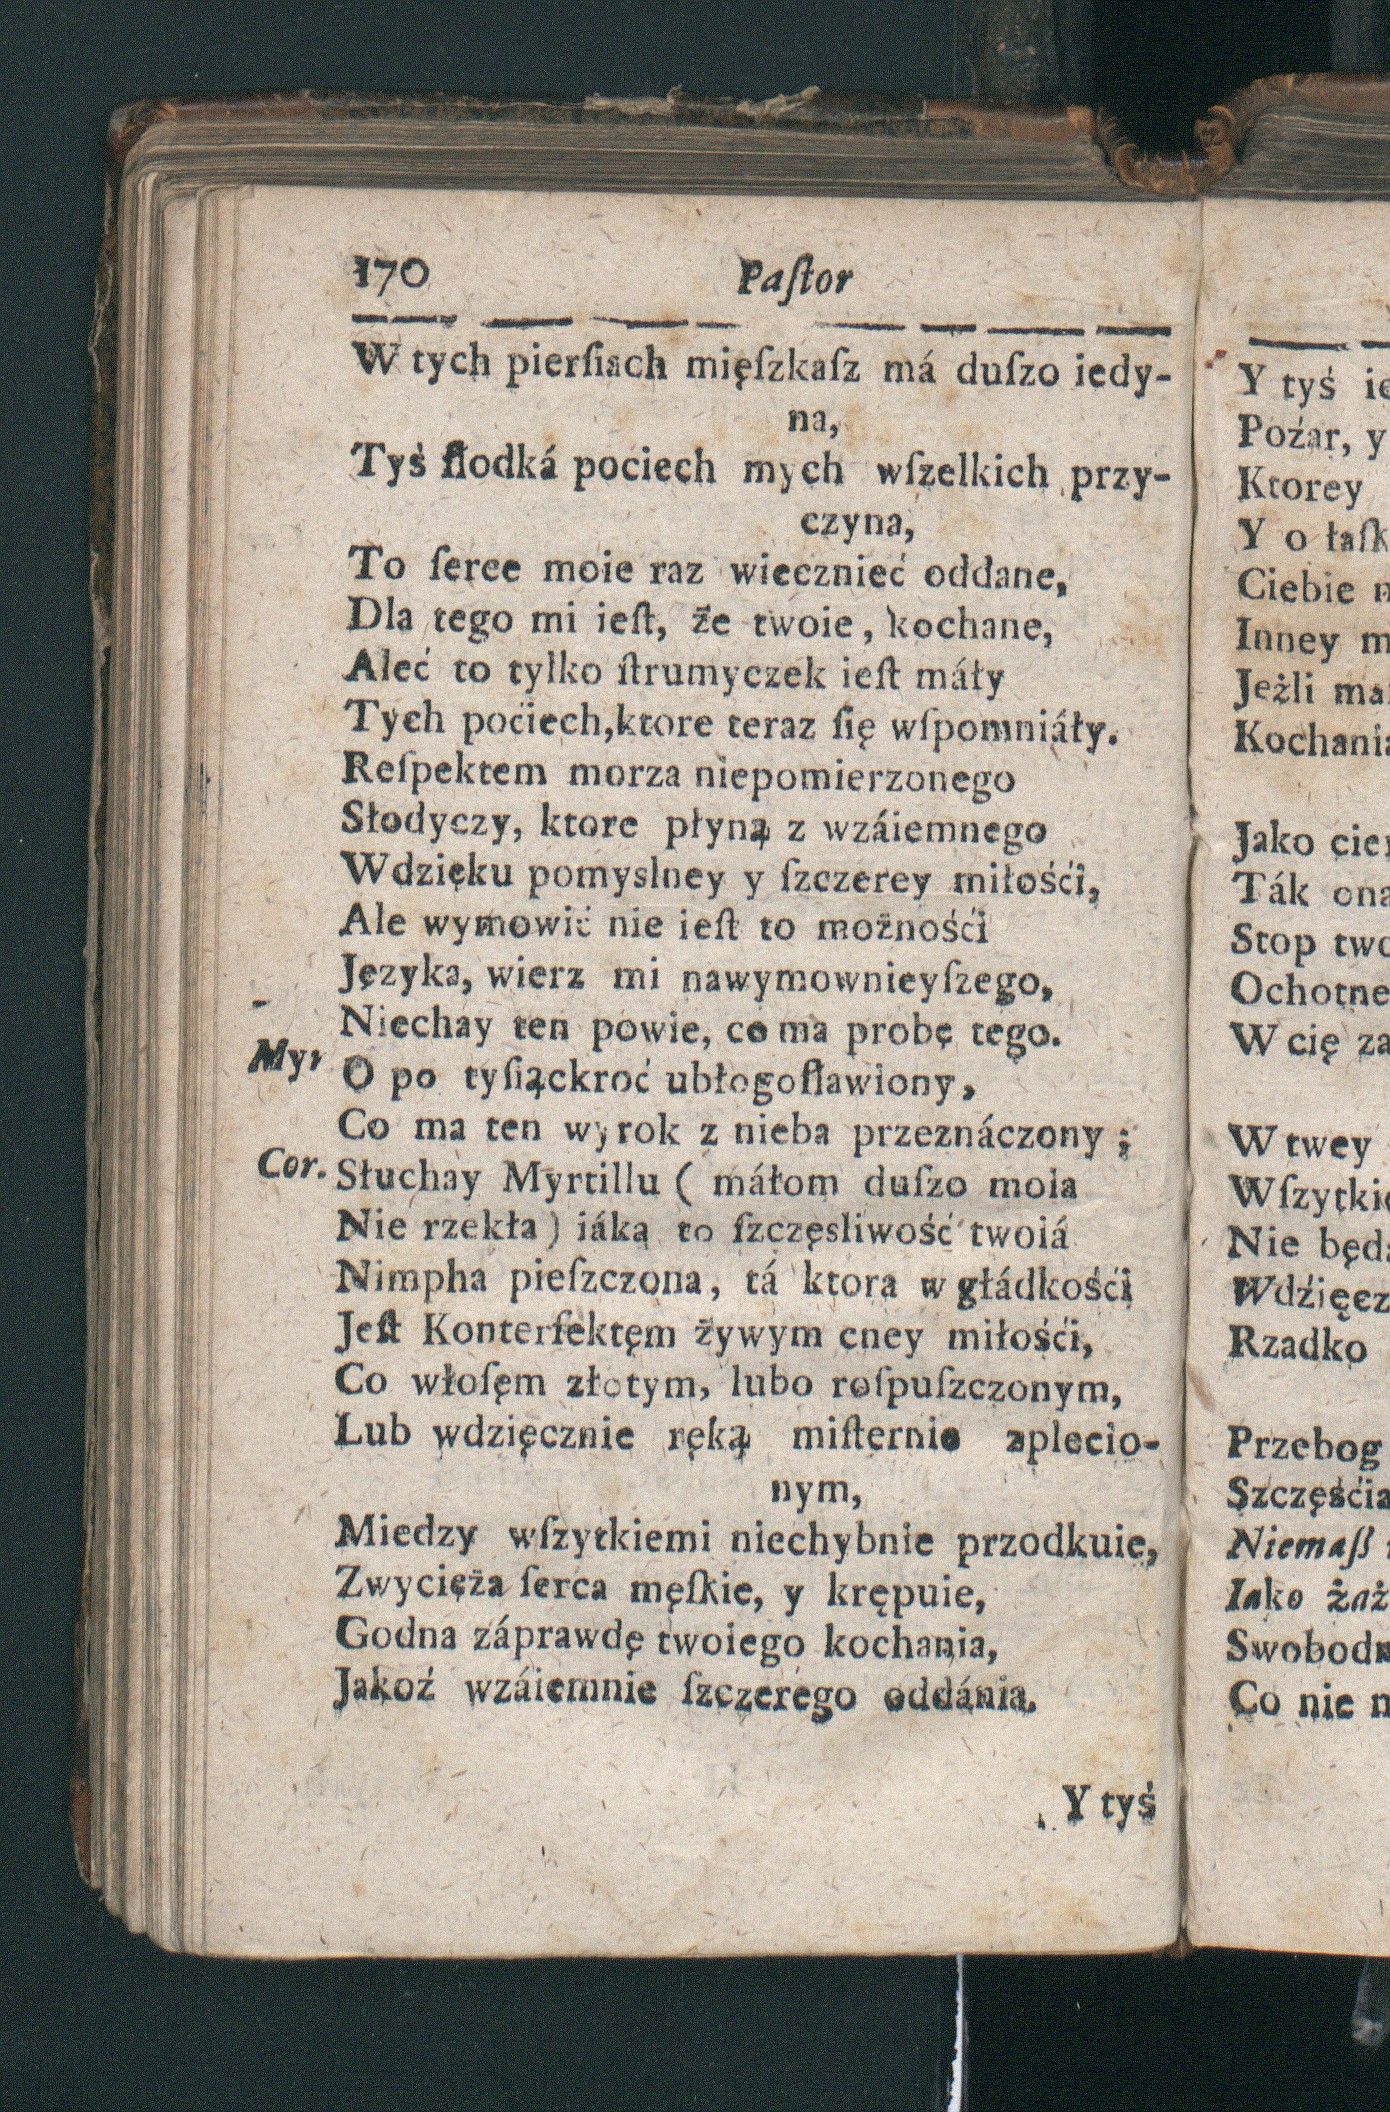 170 Paſtor
W tych pierſiach mięſzkaſz má duſzo iedy-
na,
Tyś ſlodká pociech mych wſzelkich przy-
czyna,
To ſeree moie raz wiecznieć oddane,
Dla tego mi ieſt, że twoie, kochane,
Aleć to tylko ſtrumyczek ieſt máły
Tych pociech, ktore teraz ſię wſpomniáły.
Reſpektem morza niepomierzonego
Słodyczy, ktore płyną z wzáiemnego
Wdzięku pomyslney y ſzczerey miłośći,
Ale wymowić nie ieſt to możnośći
Języka, wierz mi nawymownieyſzego,
Niechay ten powie, co ma probę tego.
Myr O po tyſiąckroć ubłogoſlawiony,
Co ma ten wyrok z nieba przeznáczony;
Cor. Słuchay Myrtillu ( máłom duſzo moia
Nie rzekła) iáką to ſzczęsliwość twoiá
Nimpha pieſzczona, tá ktora w głádkośći
Jeſt Konterfektęm żywym cney miłośći,
Co włoſęm złotym, lubo roſpuſzczonym,
Lub wdzięcznie ręką miſternie zplecio-
nym,
Miedzy wſzytkiemi niechybnie przodkuie,
Zwycięża ſerca męſkie, y krępuie,
Godna záprawdę twoiego kochania,
Jakoź wzáiemnie ſzczerego oddánia.
Y tyś
Y tyś
Poźar, y
Ktorey
Y o
Ciebie
Inney
Jeżli
Jako
Ták
Stop
W cię
W twey
Nie
Rzadko
Przebog
Iako
Co nie